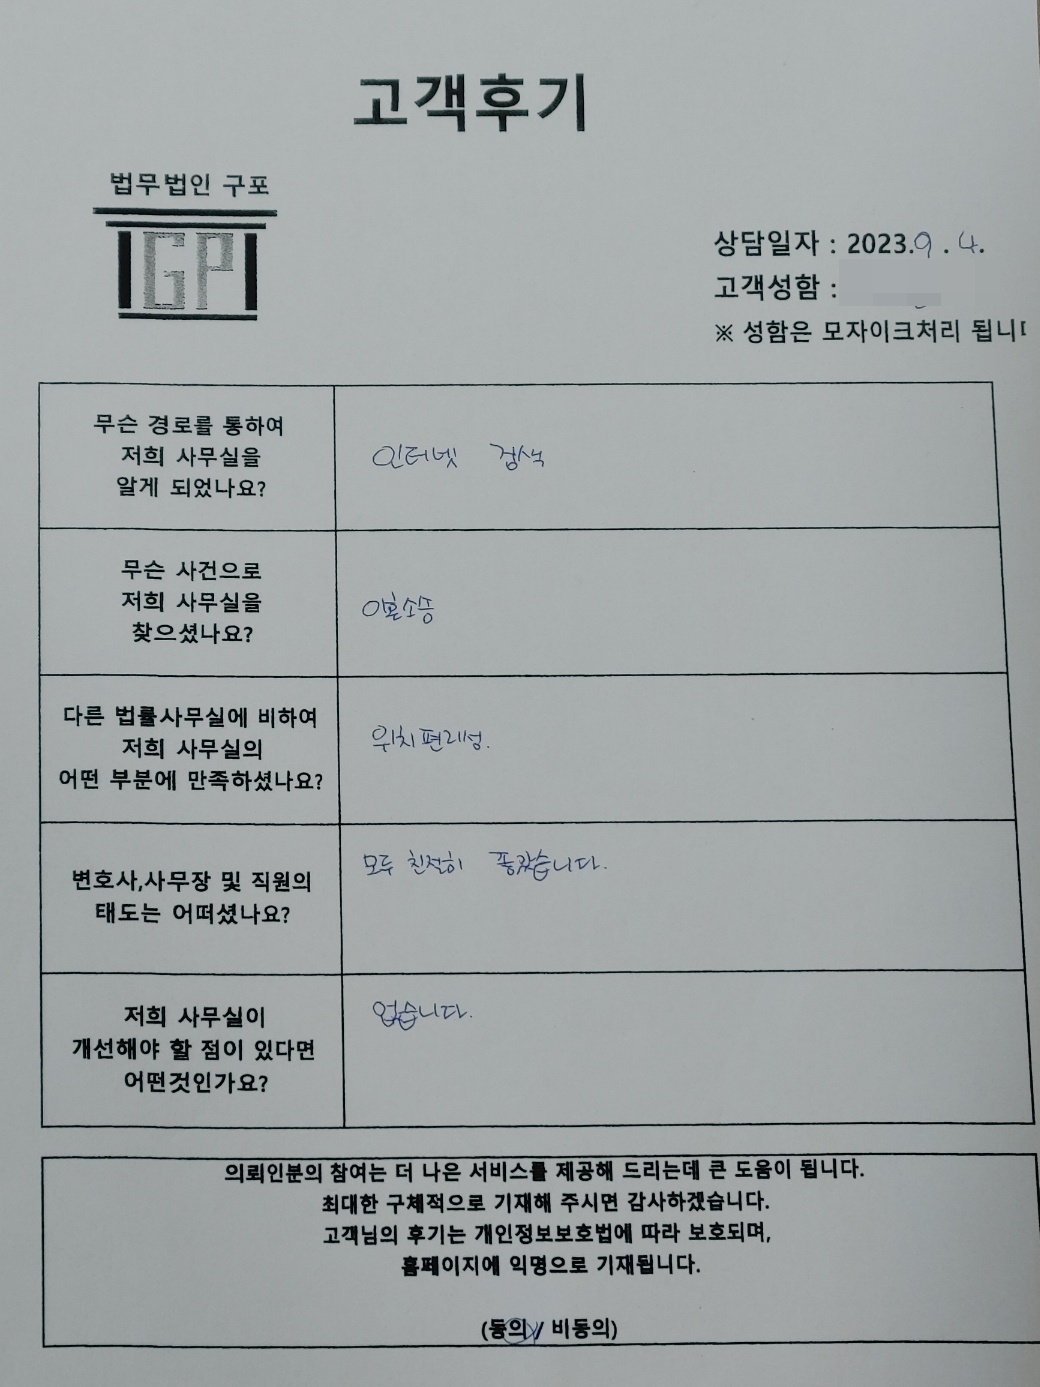 고객후기
법무법인 구포
GP
상담일자 : 2023.9.4.
고객성함 :
※ 성함은 모자이크처리 됩니
무슨 경로를 통하여
저희 사무실을
알게 되었나요?
인터넷 검색
무슨 사건으로
저희 사무실을
찾으셨나요?
이혼소송
다른 법률사무실에 비하여
저희 사무실의
어떤 부분에 만족하셨나요?
위치편리성.
변호사,사무장 및 직원의
태도는 어떠셨나요?
모두 친절히 좋았습니다.
저희 사무실이
개선해야 할 점이 있다면
어떤것인가요?
없습니다.
의뢰인분의 참여는 더 나은 서비스를 제공해 드리는데 큰 도움이 됩니다.
최대한 구체적으로 기재해 주시면 감사하겠습니다.
고객님의 후기는 개인정보보호법에 따라 보호되며,
홈페이지에 익명으로 기재됩니다.
(동의 / 비동의)